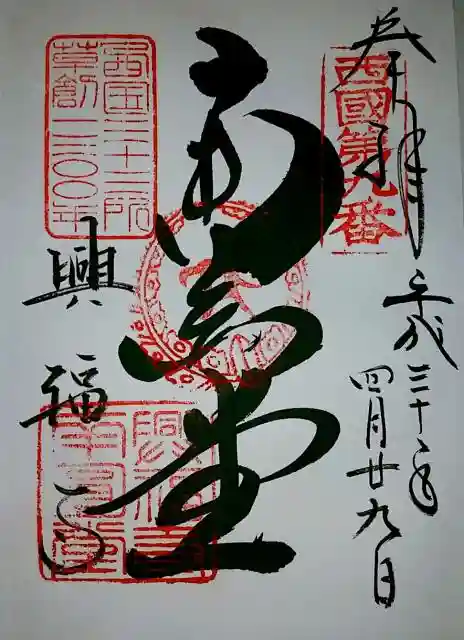 奉拝
西國第九番
平成三十年
四月廿九日
南圓堂
西国三十三所
草創一三〇〇年
興福寺
興福寺
南圓堂